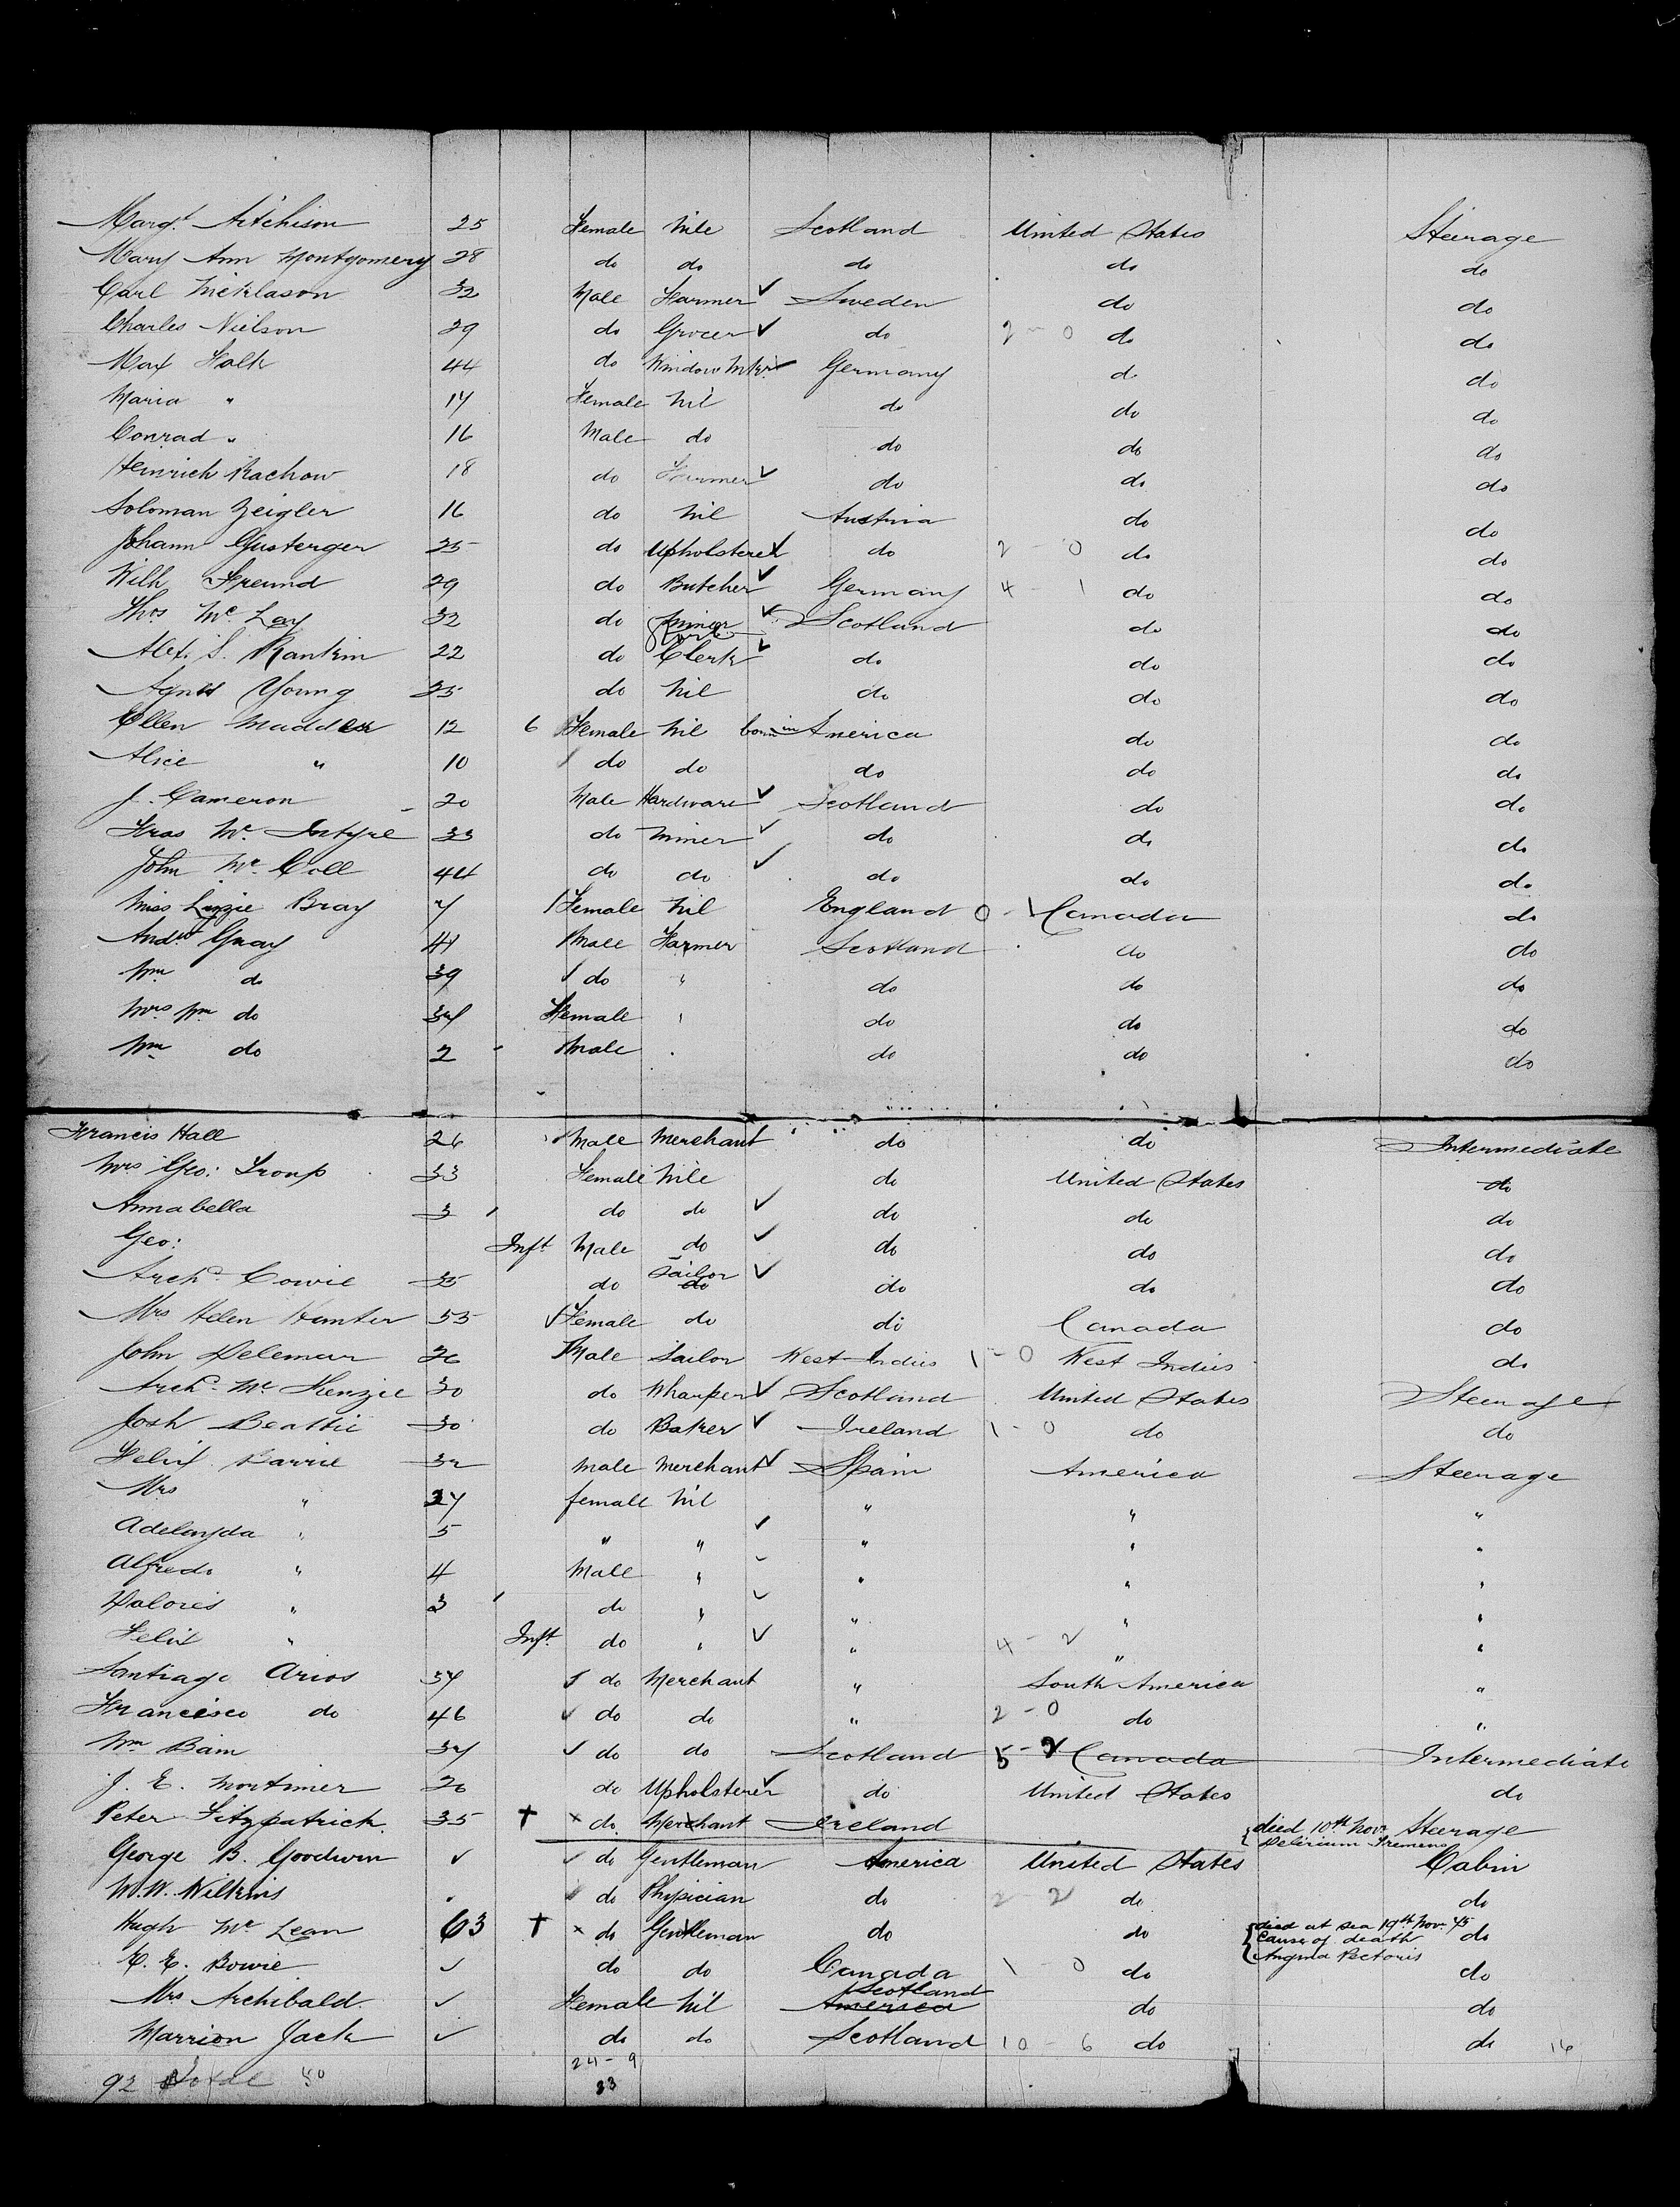 Margt. Aitchison 25 Female Nile Scotland United States Steerage
Mary Ann Montgomery 28 do do do do do
Carl Nicklason 32 Male Farmer ✓ Sweden do do
Charles Nielson 29 do Grocer ✓ do 2 - 0 do do
Max Falk 44 do Window Mkr ✓ Germany do do
Maria " 17 Female Nil do do do
Conrad " 16 Male do do do do
Heinrich Rachow 18 do Farmer ✓ do do do
Soloman Zeigler 16 do Nil Austria do do
Johann Gusterger 25 do Upholsterer ✓ do 2 - 0 do do
Wilh Freund 29 do Butcher ✓ Germany 4 - 1 do do
Thos Mc Lay 32 do Miner ✓ Scotland do do
Alex. S. Rankin 22 do Clerk ✓ do do do
Agnes Young 25 do Nil do do do
Ellen Madden 12 6 Female Nil born in America do do
Alice " 10 do do do do do
J. Cameron 20 Male Hardware ✓ Scotland do do
Fras Mc Intyre 33 do Miner ✓ do do do
John Mc Coll 44 do do ✓ do do do
Miss Lizzie Bray 7 Female Nil England 0 - 1 Canada do
Andw Gray 41 Male Farmer Scotland do do
Wm do 39 ✓ do " do do do
Mrs Wm do 37 Female " do do do
Wm do 2 Male do do do
Francis Hall 26 Male Merchant do do Intermediate
Mrs Geo: Troup 33 Female Nile do United States do
Annabella 3 do do ✓ do do do
Geo: Inft Male do ✓ do do do
Archd. Cowie 35 do Tailor do ✓ do do do
Mrs Helen Hunter 55 ✓ Female do do Canada do
John Delemar 26 Male Sailor West Indies 1 - 0 West Indies do
Archd. Mc Kenzie 30 do Wharper ✓ Scotland United States Steerage
Josh Beattie 30 do Baker ✓ Ireland 1 - 0 do do
Felix Barrie 32 Male Merchant ✓ Spain America Steerage
Mrs " 27 female Nil " " "
Adelayda " 5 " " ✓ " " "
Alfredo " 4 Male " ✓ " " "
Dalores " 3 do " ✓ " " "
Felix " Inft. do " ✓ " 4 - 2 " "
Santiago Arios 37 ✓ do Merchant " South America "
Francisco do 46 ✓ do do " 2 - 0 do "
Wm Bain 37 ✓ do do Scotland 5 - 2 Canada Intermediate
J. E. Mortimer 26 do Upholsterer ✓ do United States do
Peter Fitzpatrick 35 + × do Merchant Ireland died 10th Novr Delirium Tremens Steerage
George B. Goodwin ✓ ✓ do Gentleman America United States Cabin
W.W. Wilkins do Physician do 2 - 2 do do
Hugh Mc Lean 63 + × do Gentleman do do died at sea 19th Nov 75 Cause of death Angina Pectoris do
E. E. Bowie ✓ do do Canada 1 - 0 do do
Mrs Archibald ✓ Female Nil America Scotland do do
Marrion Jack ✓ do do Scotland 10 - 6 do do 16
24 - 9
92 Total 33